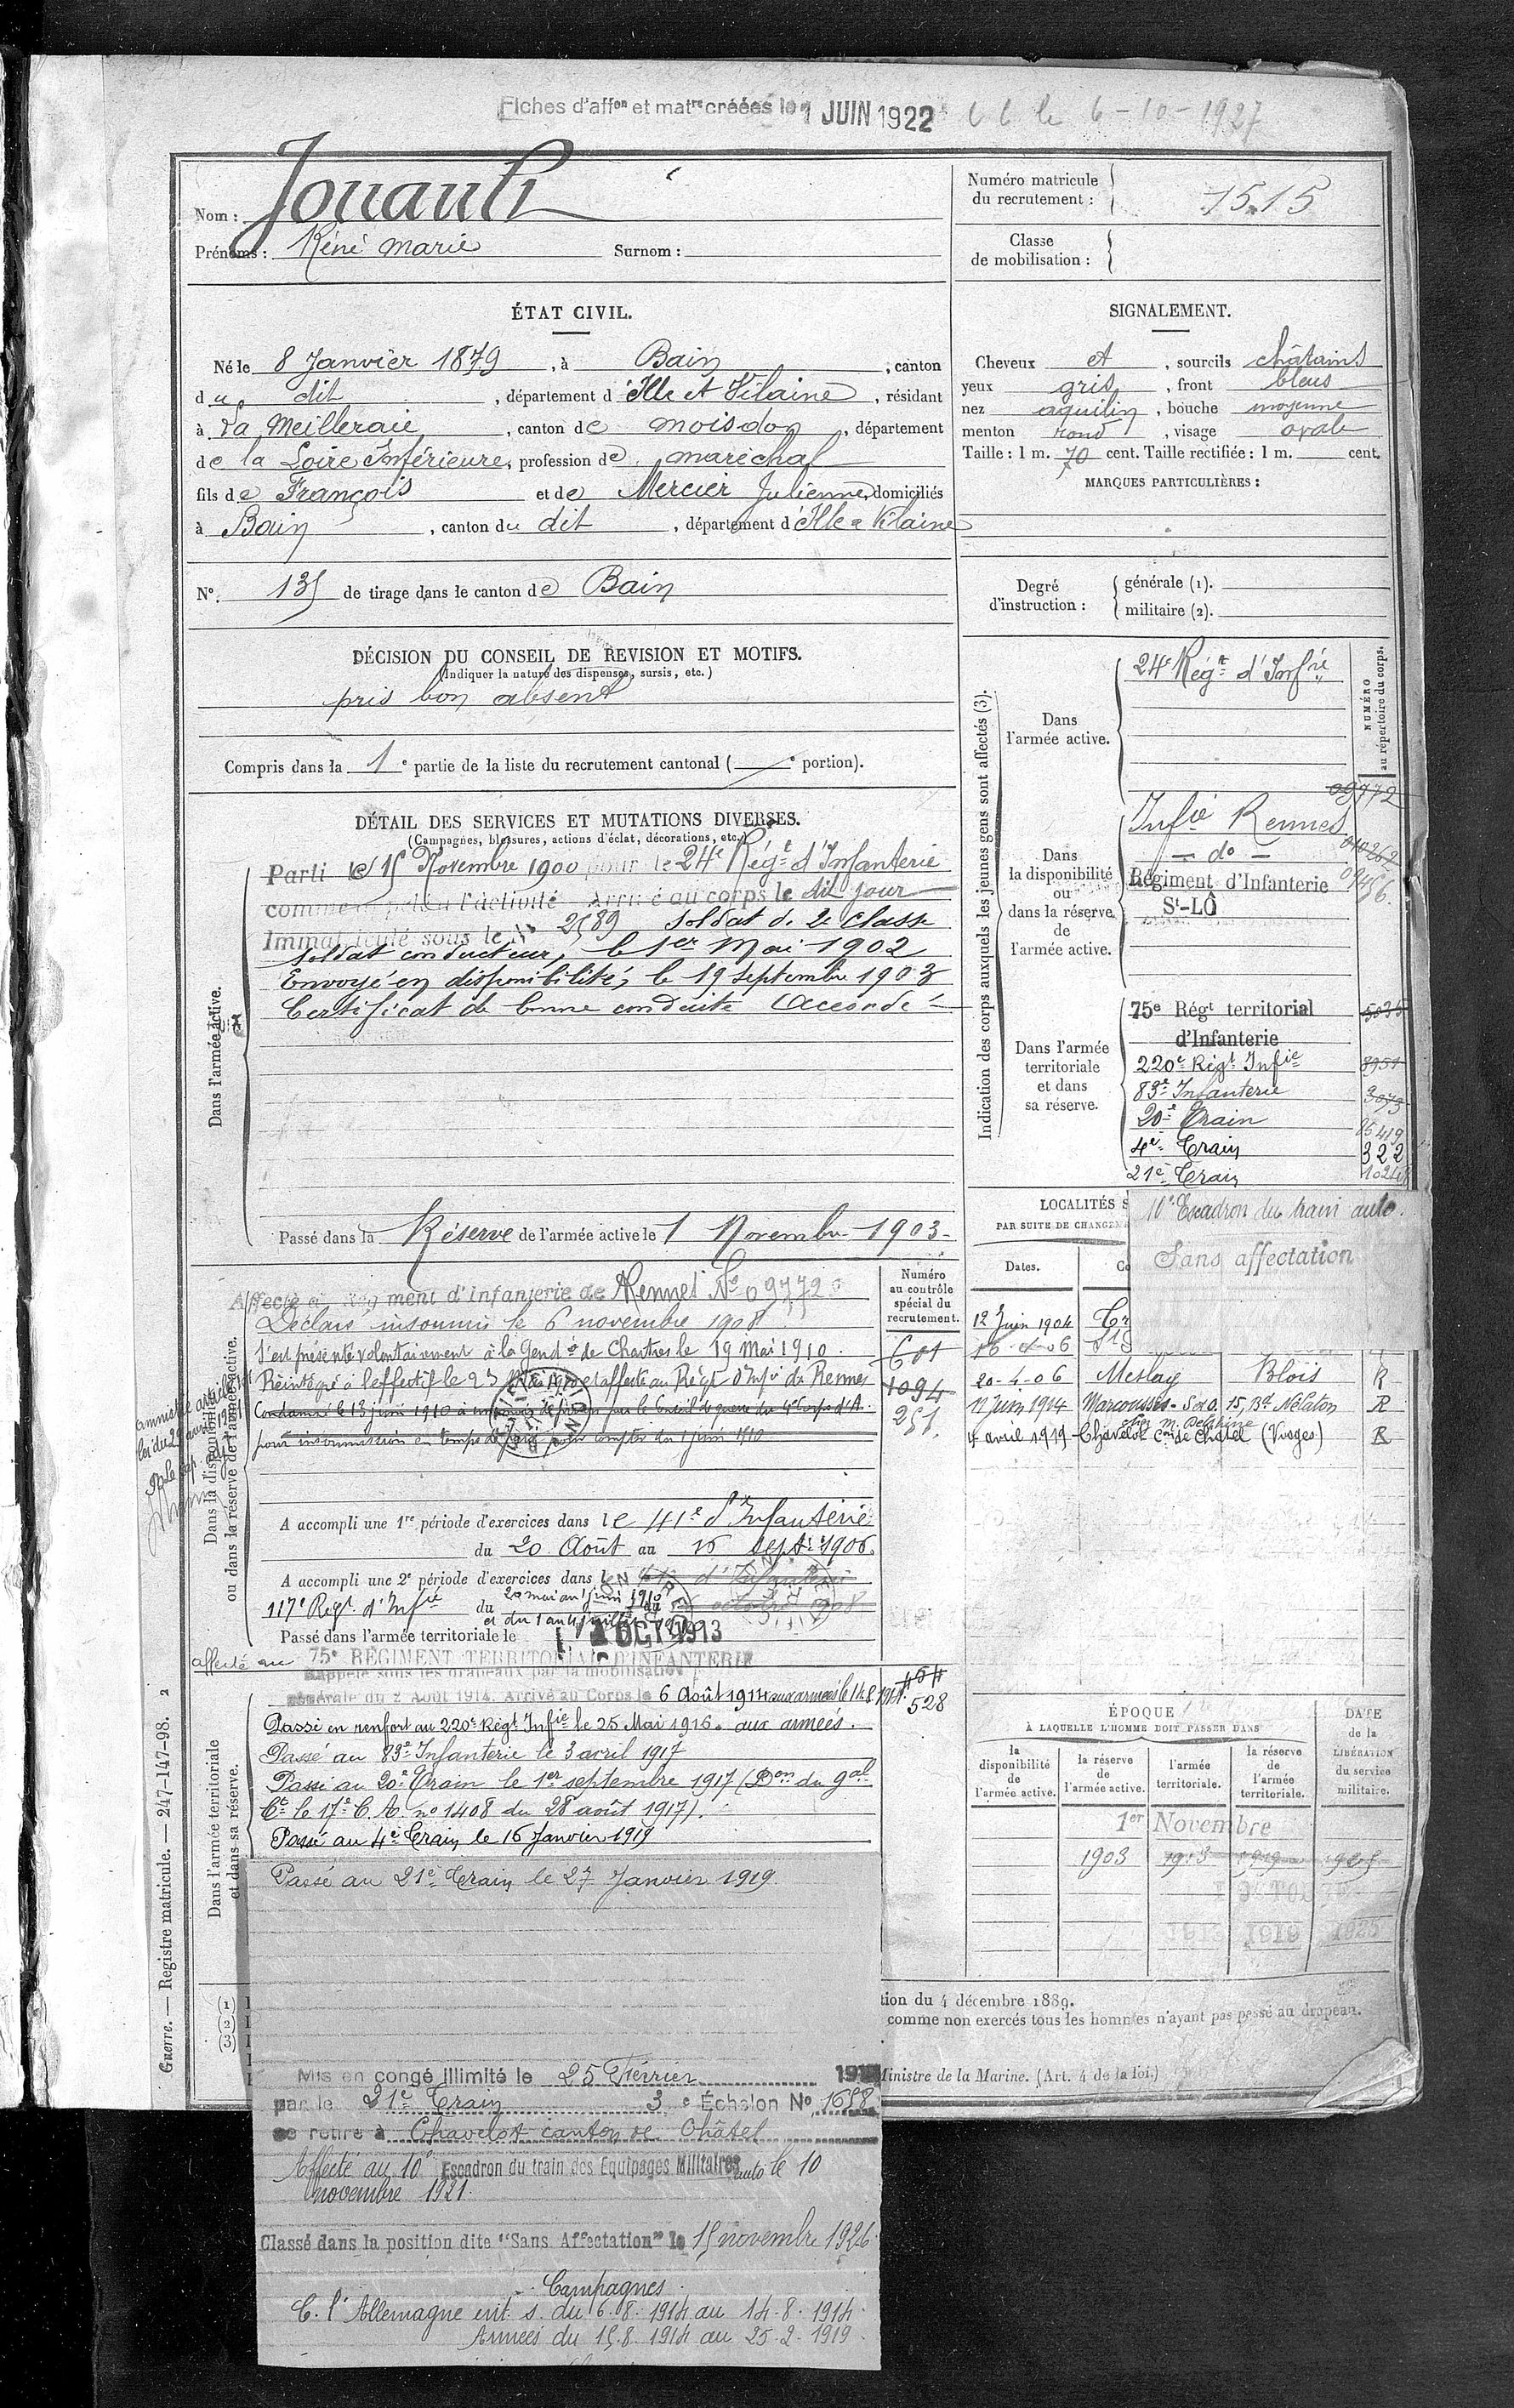 Fiches d'affon et matre créées le 1 JUIN 1922 le 6-10-1927
Nom : Jouault
Prénoms : Réné Marie Surnom :
Numéro matricule du recrutement : 1515
Classe de mobilisation :
ÉTAT CIVIL.
Né le 8 Janvier 1879, à Bain, canton
du dit, département d'Ille et Vilaine, résidant
à La Meilleraie, canton de Moisdon, département
de la Loire Inférieure, profession de maréchal
fils de François et de Mercier Julienne, domiciliés
à Bain, canton du dit, département d'Ille & Vilaine
N° 135 de tirage dans le canton de Bain
SIGNALEMENT.
Cheveux et, sourcils châtains
yeux gris, front bleus
nez aquilin, bouche moyenne
menton rond, visage ovale
Taille : 1 m. 70 cent. Taille rectifiée : 1 m. cent.
MARQUES PARTICULIÈRES :
Degré d'instruction :
générale (1).
militaire (2).
DÉCISION DU CONSEIL DE REVISION ET MOTIFS.
(Indiquer la nature des dispenses, sursis, etc.)
pris bon absent
Compris dans la 1e partie de la liste du recrutement cantonal ( e portion).
DÉTAIL DES SERVICES ET MUTATIONS DIVERSES.
(Campagnes, blessures, actions d'éclat, décorations, etc.)
Dans l'armée active.
Parti le 15 Novembre 1900 pour le 24e Régt d'Infanterie
comme appelé à l'activité Arrivé au corps le dit jour
Immatriculé sous le N° 2589 soldat de 2e classe
soldat conducteur, le 1er Mai 1902
Envoyé en disponibilité, le 19 septembre 1903
Certificat de bonne conduite Accordé
Passé dans la Réserve de l'armée active le 1 Novembre 1903
Indication des corps auxquels les jeunes gens sont affectés (3).
NUMÉRO au répertoire du corps.
Dans l'armée active.
24e Régt d'Infrie
Dans la disponibilité ou dans la réserve de l'armée active.
Infie Rennes 09772
- do -
Régiment d'Infanterie
St-LÔ
Dans l'armée territoriale et dans sa réserve.
75e Régt territorial
d'Infanterie
220e Régt Infie
83e Infanterie
20e Train
4e Train 322
21e Train
10e Escadron du train auto.
Sans affectation
LOCALITÉS S
PAR SUITE DE CHANGEM
Dates.
12 Juin 1904
16-4-06
20-4-06 Meslay Blois R
11 Juin 1914 Marcoussis - S et O. 15, Bd Nélaton R
4 avril 1919 - Chavelot Con de Chatel (Vosges) R
Dans la disponibilité ou dans la réserve de l'armée active.
Numéro au contrôle spécial du recrutement.
Affecté au Régiment d'infanterie de Rennes No 09772
Déclaré insoumis le 6 novembre 1908
S'est présenté volontairement à la Gendie de Chartres le 19 Mai 1910.
Réintégré à l'effectif le 25 Mai 1910 et affecté au Régt d'Infie de Rennes
Condamné le 13 juin 1910 à un mois de prison par le Conseil de guerre du 4e Corps d'A.
pour insoumission en temps de paix pour compter du 1 juin 1910
601
1094
251
A accompli une 1re période d'exercices dans le 41e d'Infanterie
du 20 Août au 16 Sept. 1906
A accompli une 2e période d'exercices dans l
117e Régt d'Infie du 20 mai au 1 juin 1910
Passé dans l'armée territoriale le 1 OCT 1913
affecté au 75e RÉGIMENT TERRITORIAL D'INFANTERIE
Dans l'armée territoriale et dans sa réserve.
Rappelé sous les drapeaux par la mobilisation
générale du 2 Août 1914. Arrivé au Corps le 6 Août 1914 aux armées le 14.8.1914.
528
Passé en renfort au 220e Régt Infie le 25 Mai 1916. aux armées.
Passé au 83e Infanterie le 3 avril 1917
Passé au 20e Train le 1er septembre 1917 (Don du gal
Ct le 17e C.A. no 1408 du 28 août 1917).
Passé au 4e Train le 16 Janvier 1919
Passé au 21e Train le 27 Janvier 1919.
ÉPOQUE
À LAQUELLE L'HOMME DOIT PASSER DANS
la disponibilité de l'armée active.
la réserve de l'armée active.
l'armée territoriale.
la réserve de l'armée territoriale.
DATE de la LIBÉRATION du service militaire.
1er Novembre
1903 1913 1919
1913 1919 1925
(1)
(2)
(3)
tion du 4 décembre 1889.
comme non exercés tous les hommes n'ayant pas passé au drapeau.
Ministre de la Marine. (Art. 4 de la loi.)
Guerre. — Registre matricule. — 247-147-98. 2
Mis en congé illimité le 25 Février 191
par le 21e Train 3e Échelon No 1658
se retire à Chavelot canton de Châtel
Affecté au 10e Escadron du train des Equipages Militaires auto le 10
novembre 1921.
Classé dans la position dite "Sans Affectation" le 15 novembre 1926
Campagnes
C. l'Allemagne int. s. du 6.8.1914 au 14.8.1914.
Armées du 15.8.1914 au 25.2.1919